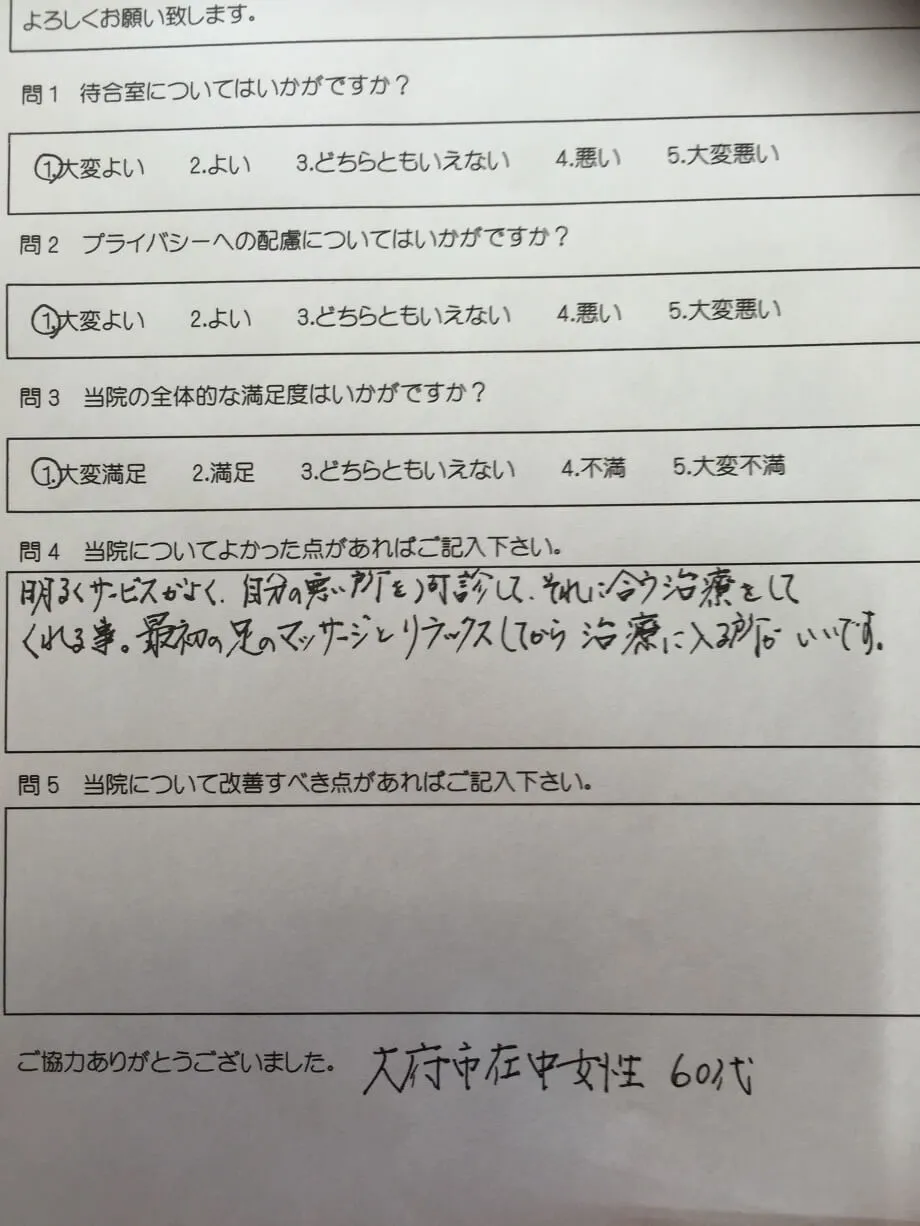 よろしくお願い致します。
問1 待合室についてはいかがですか？
1.大変よい 2.よい 3.どちらともいえない 4.悪い 5.大変悪い
問2 プライバシーへの配慮についてはいかがですか？
1.大変よい 2.よい 3.どちらともいえない 4.悪い 5.大変悪い
問3 当院の全体的な満足度はいかがですか？
1.大変満足 2.満足 3.どちらともいえない 4.不満 5.大変不満
問4 当院についてよかった点があればご記入下さい。
明るくサービスがよく、自分の悪い所を診して、それに合う治療をして
くれる事。最初の足のマッサージとリラックスしてから治療に入る所がいいです。
問5 当院について改善すべき点があればご記入下さい。
ご協力ありがとうございました。 大府市在中女性 60代